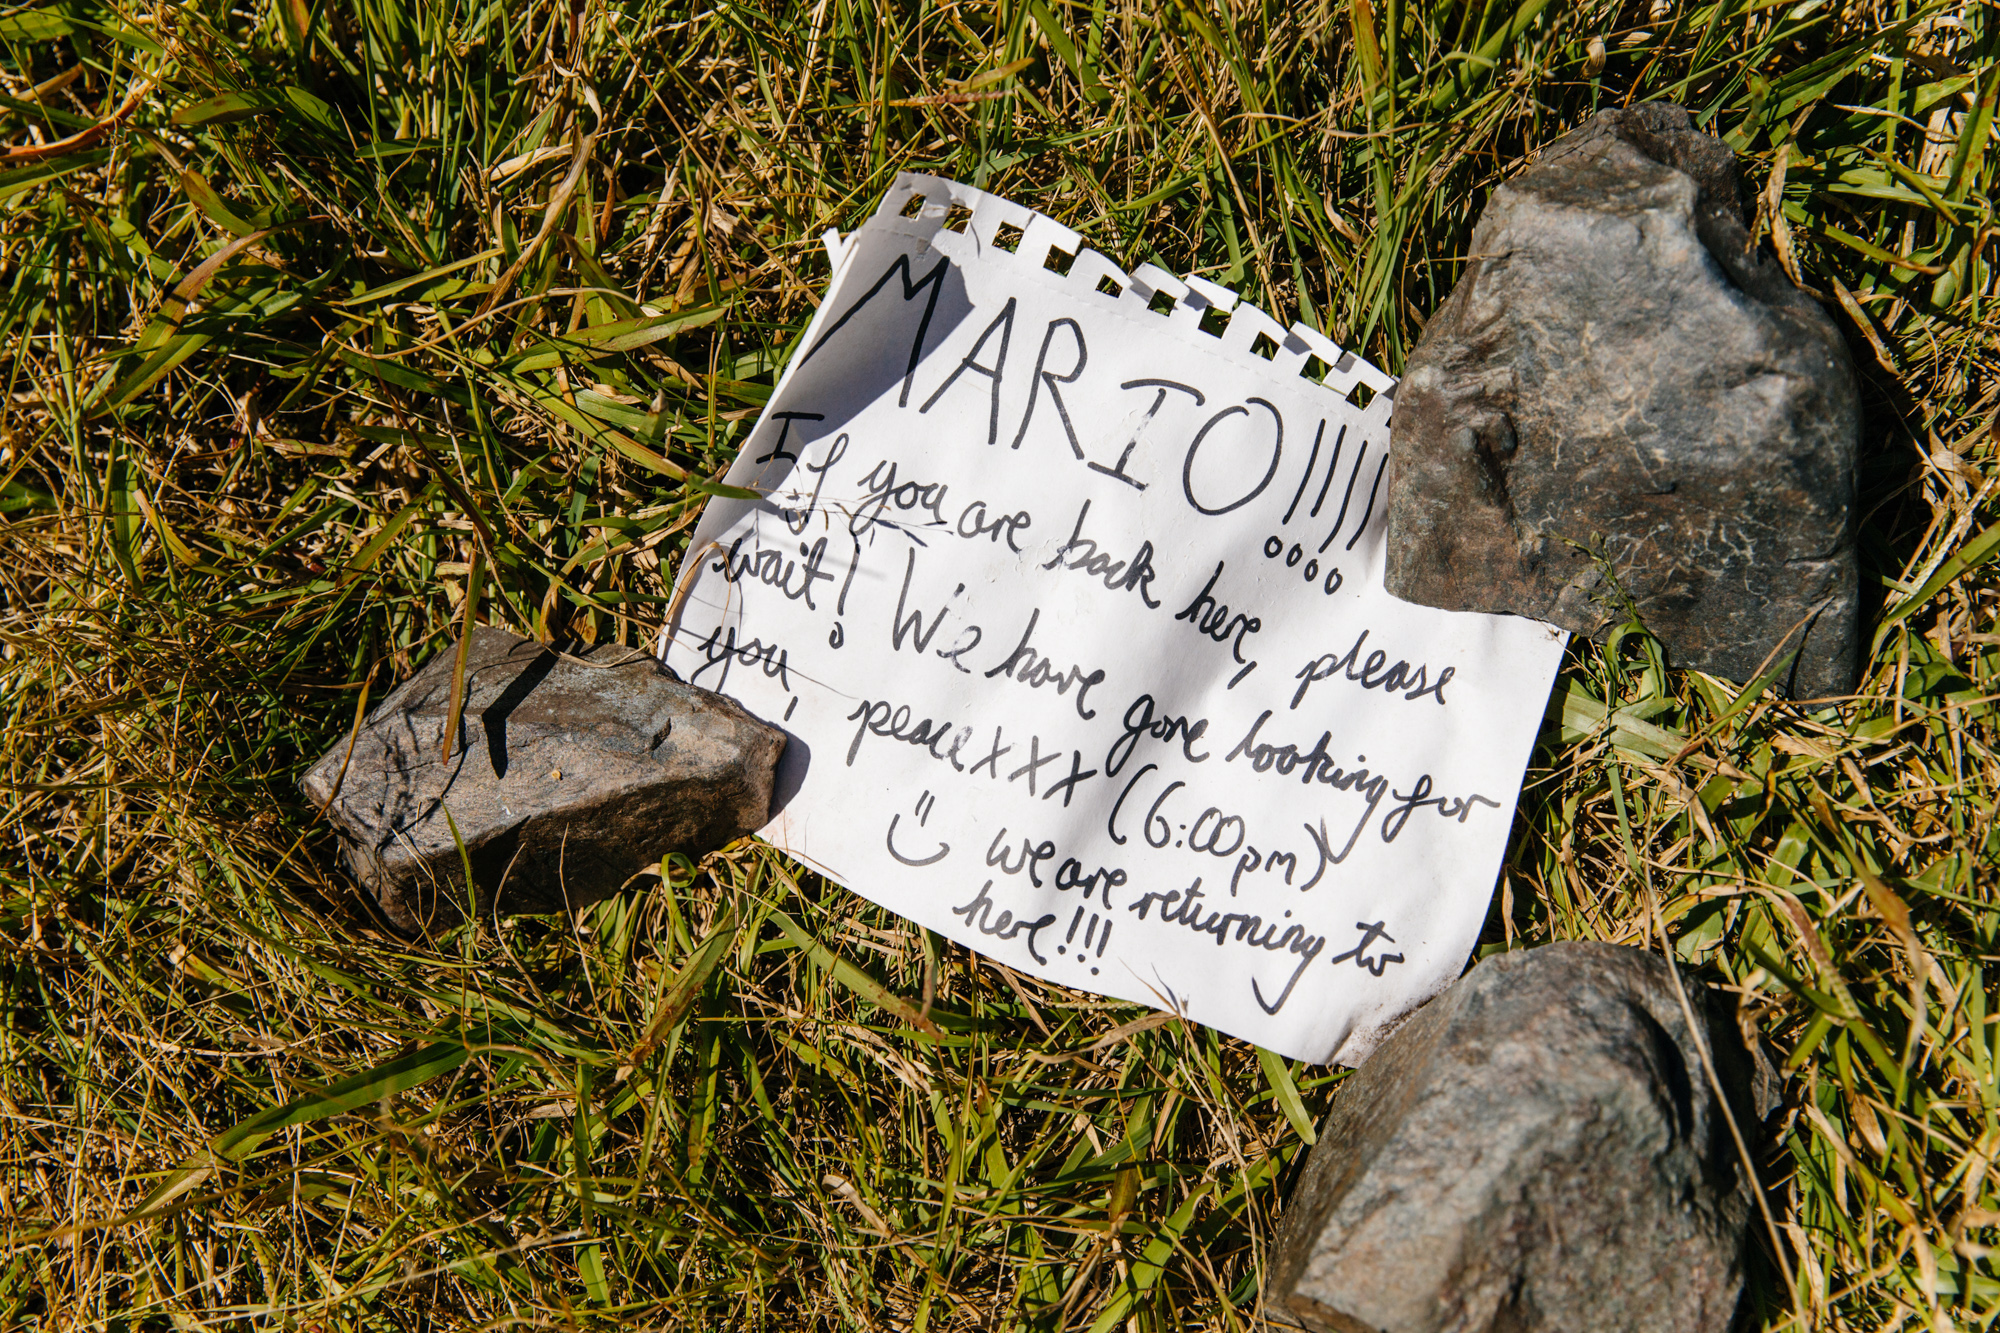 MARIO!!!!
If you are back here, please
wait! We have gone looking for
you, peace xxx (6:00pm)
we are returning to
here!!!